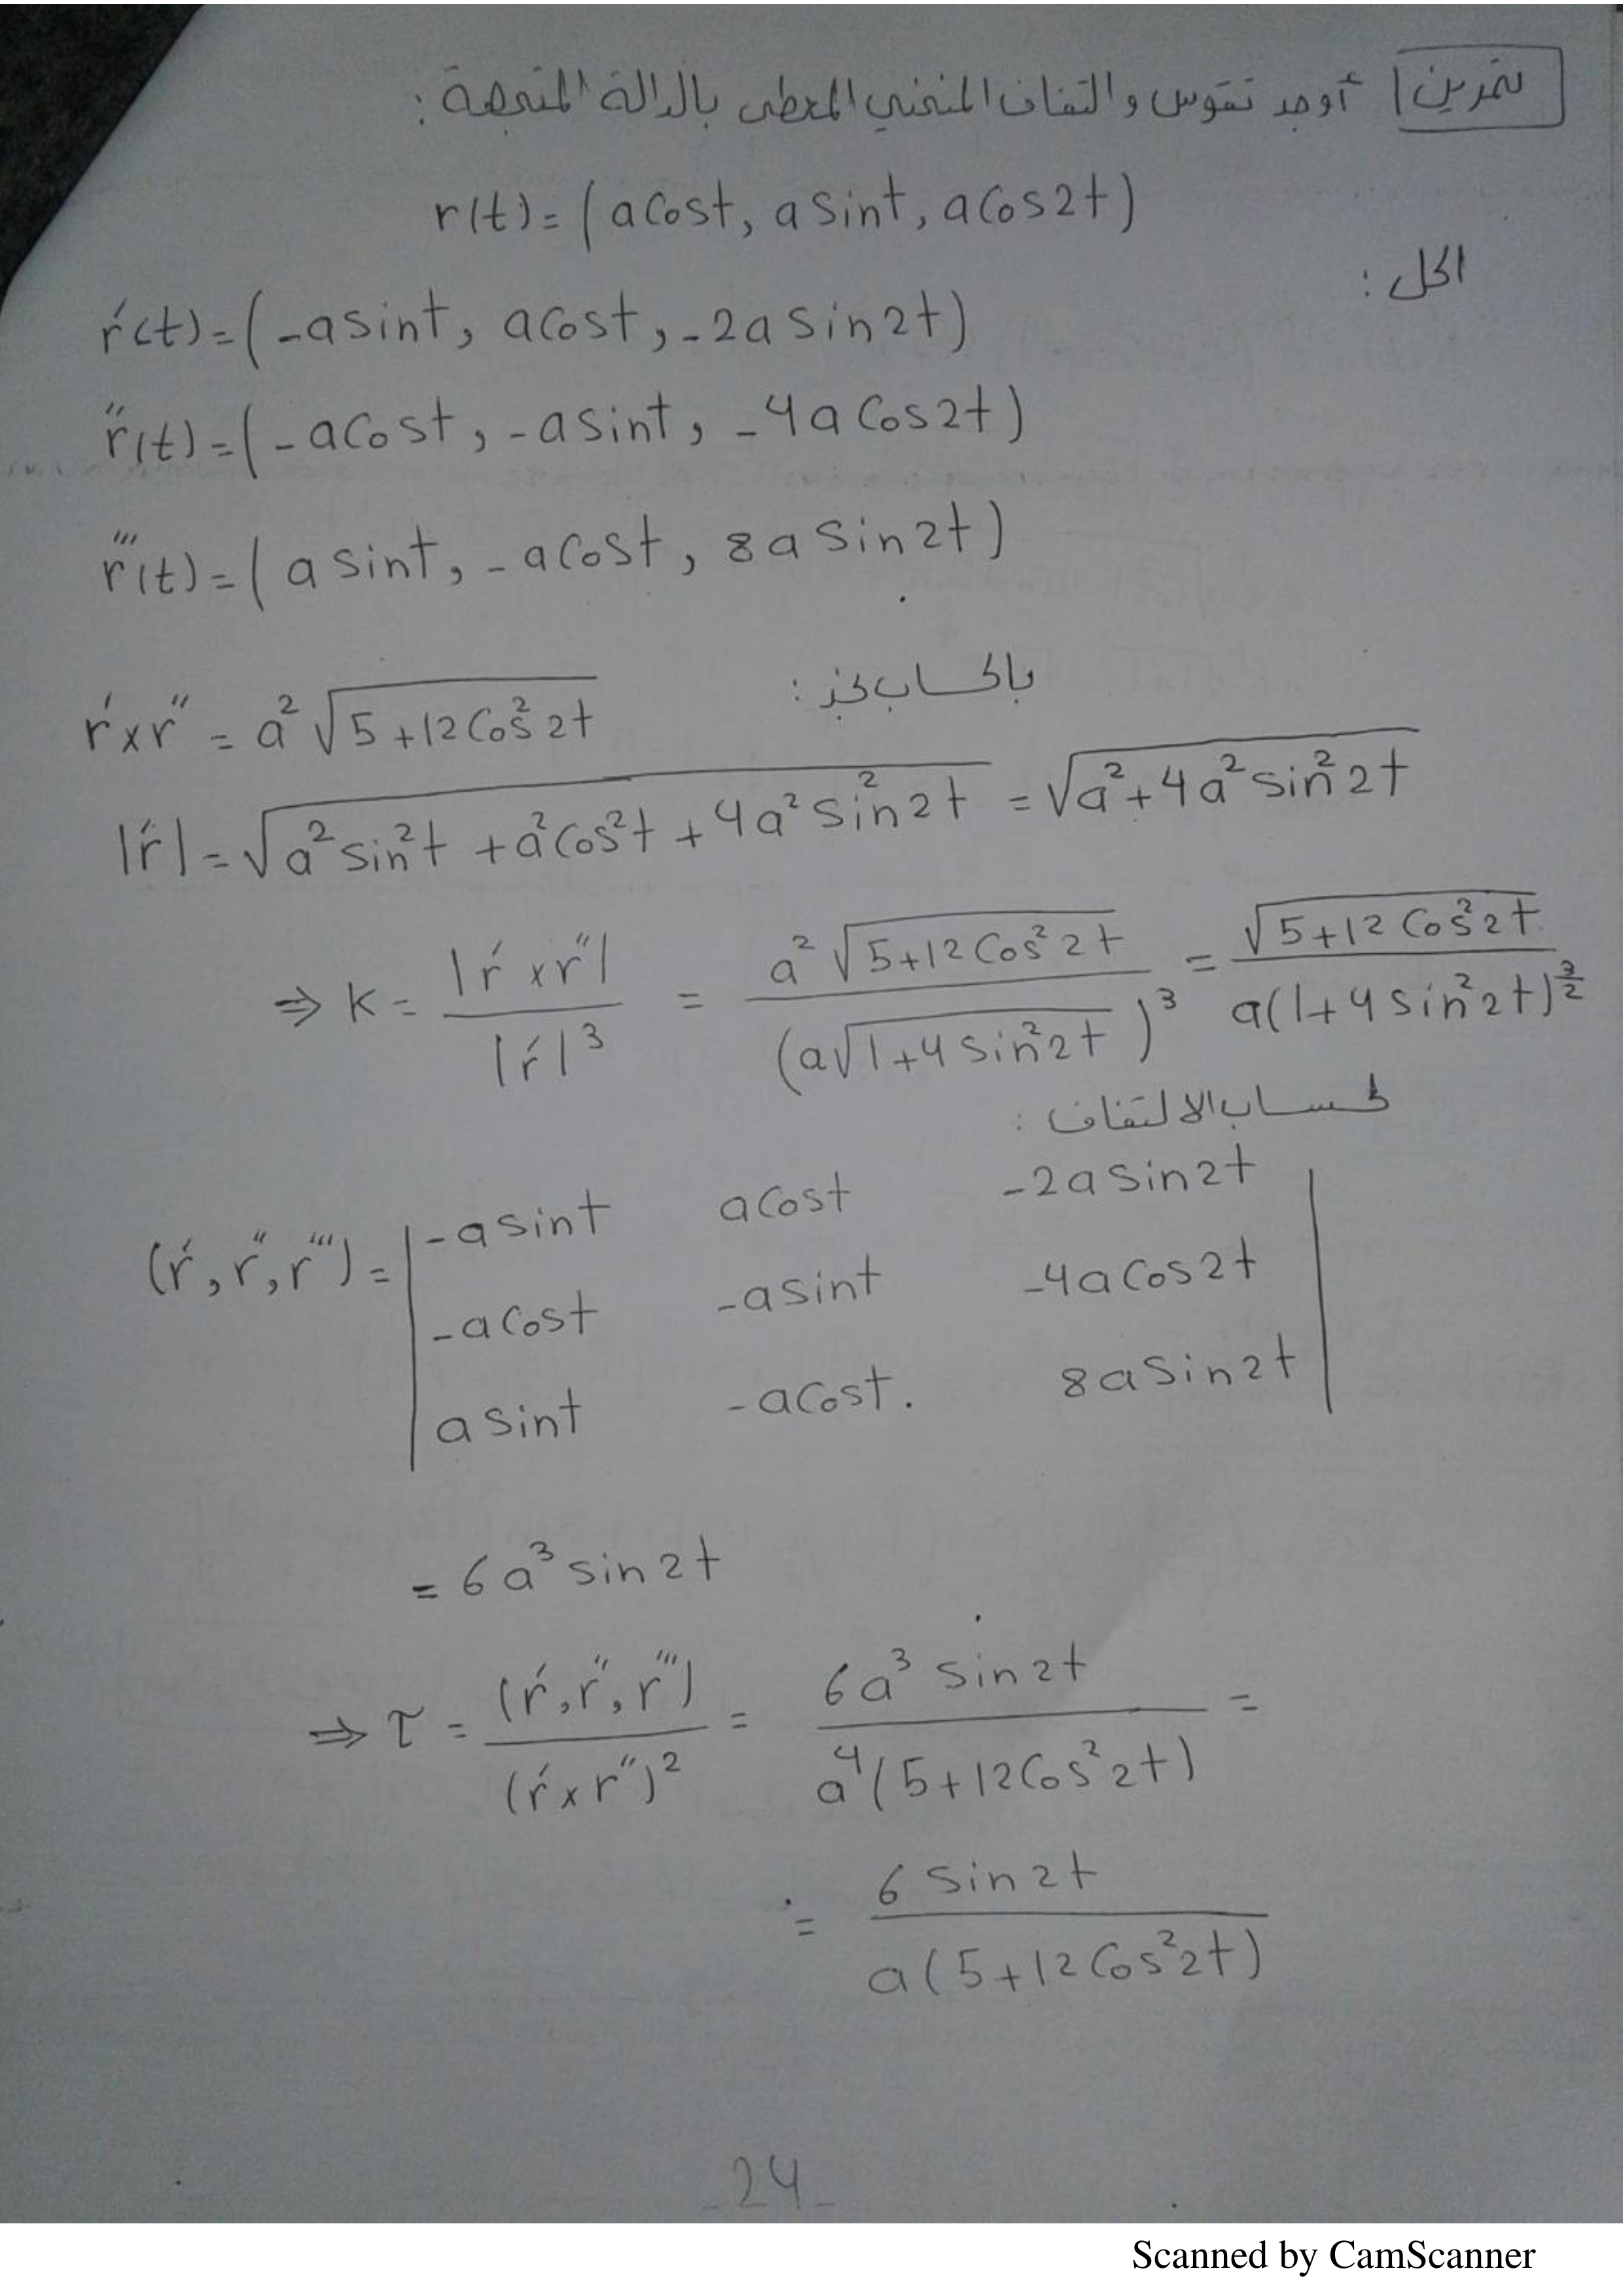 تمرين | أوجد تقوس والتفاف المنحني المعطى بالدالة المتجهة :
r(t) = (a cost, a sint, a cos2t)
الحل :
r′(t) = (-a sint, a cost, -2a sin2t)
r″(t) = (-a cost, -a sint, -4a cos2t)
r‴(t) = (a sint, -a cost, 8a sin2t)
بالحساب نجد :
r′ × r″ = a² √(5+12cos²2t)
|r′| = √(a² sin²t + a² cos²t + 4a² sin²2t) = √(a² + 4a² sin²2t)
⇒ K = |r′ × r″| / |r′|³ = a² √(5+12cos²2t) / (a√(1+4 sin²2t))³ = √(5+12cos²2t) / a(1+4 sin²2t)^(3/2)
لحساب الالتفاف :
(r′, r″, r‴) = | -a sint a cost -2a sin2t |
-a cost -a sint -4a cos2t
a sint -a cost. 8a sin2t
= 6a³ sin2t
⇒ τ = (r′, r″, r‴) / (r′ × r″)² = 6a³ sin2t / a⁴(5+12cos²2t) =
= 6 sin2t / a(5+12cos²2t)
-24-
Scanned by CamScanner